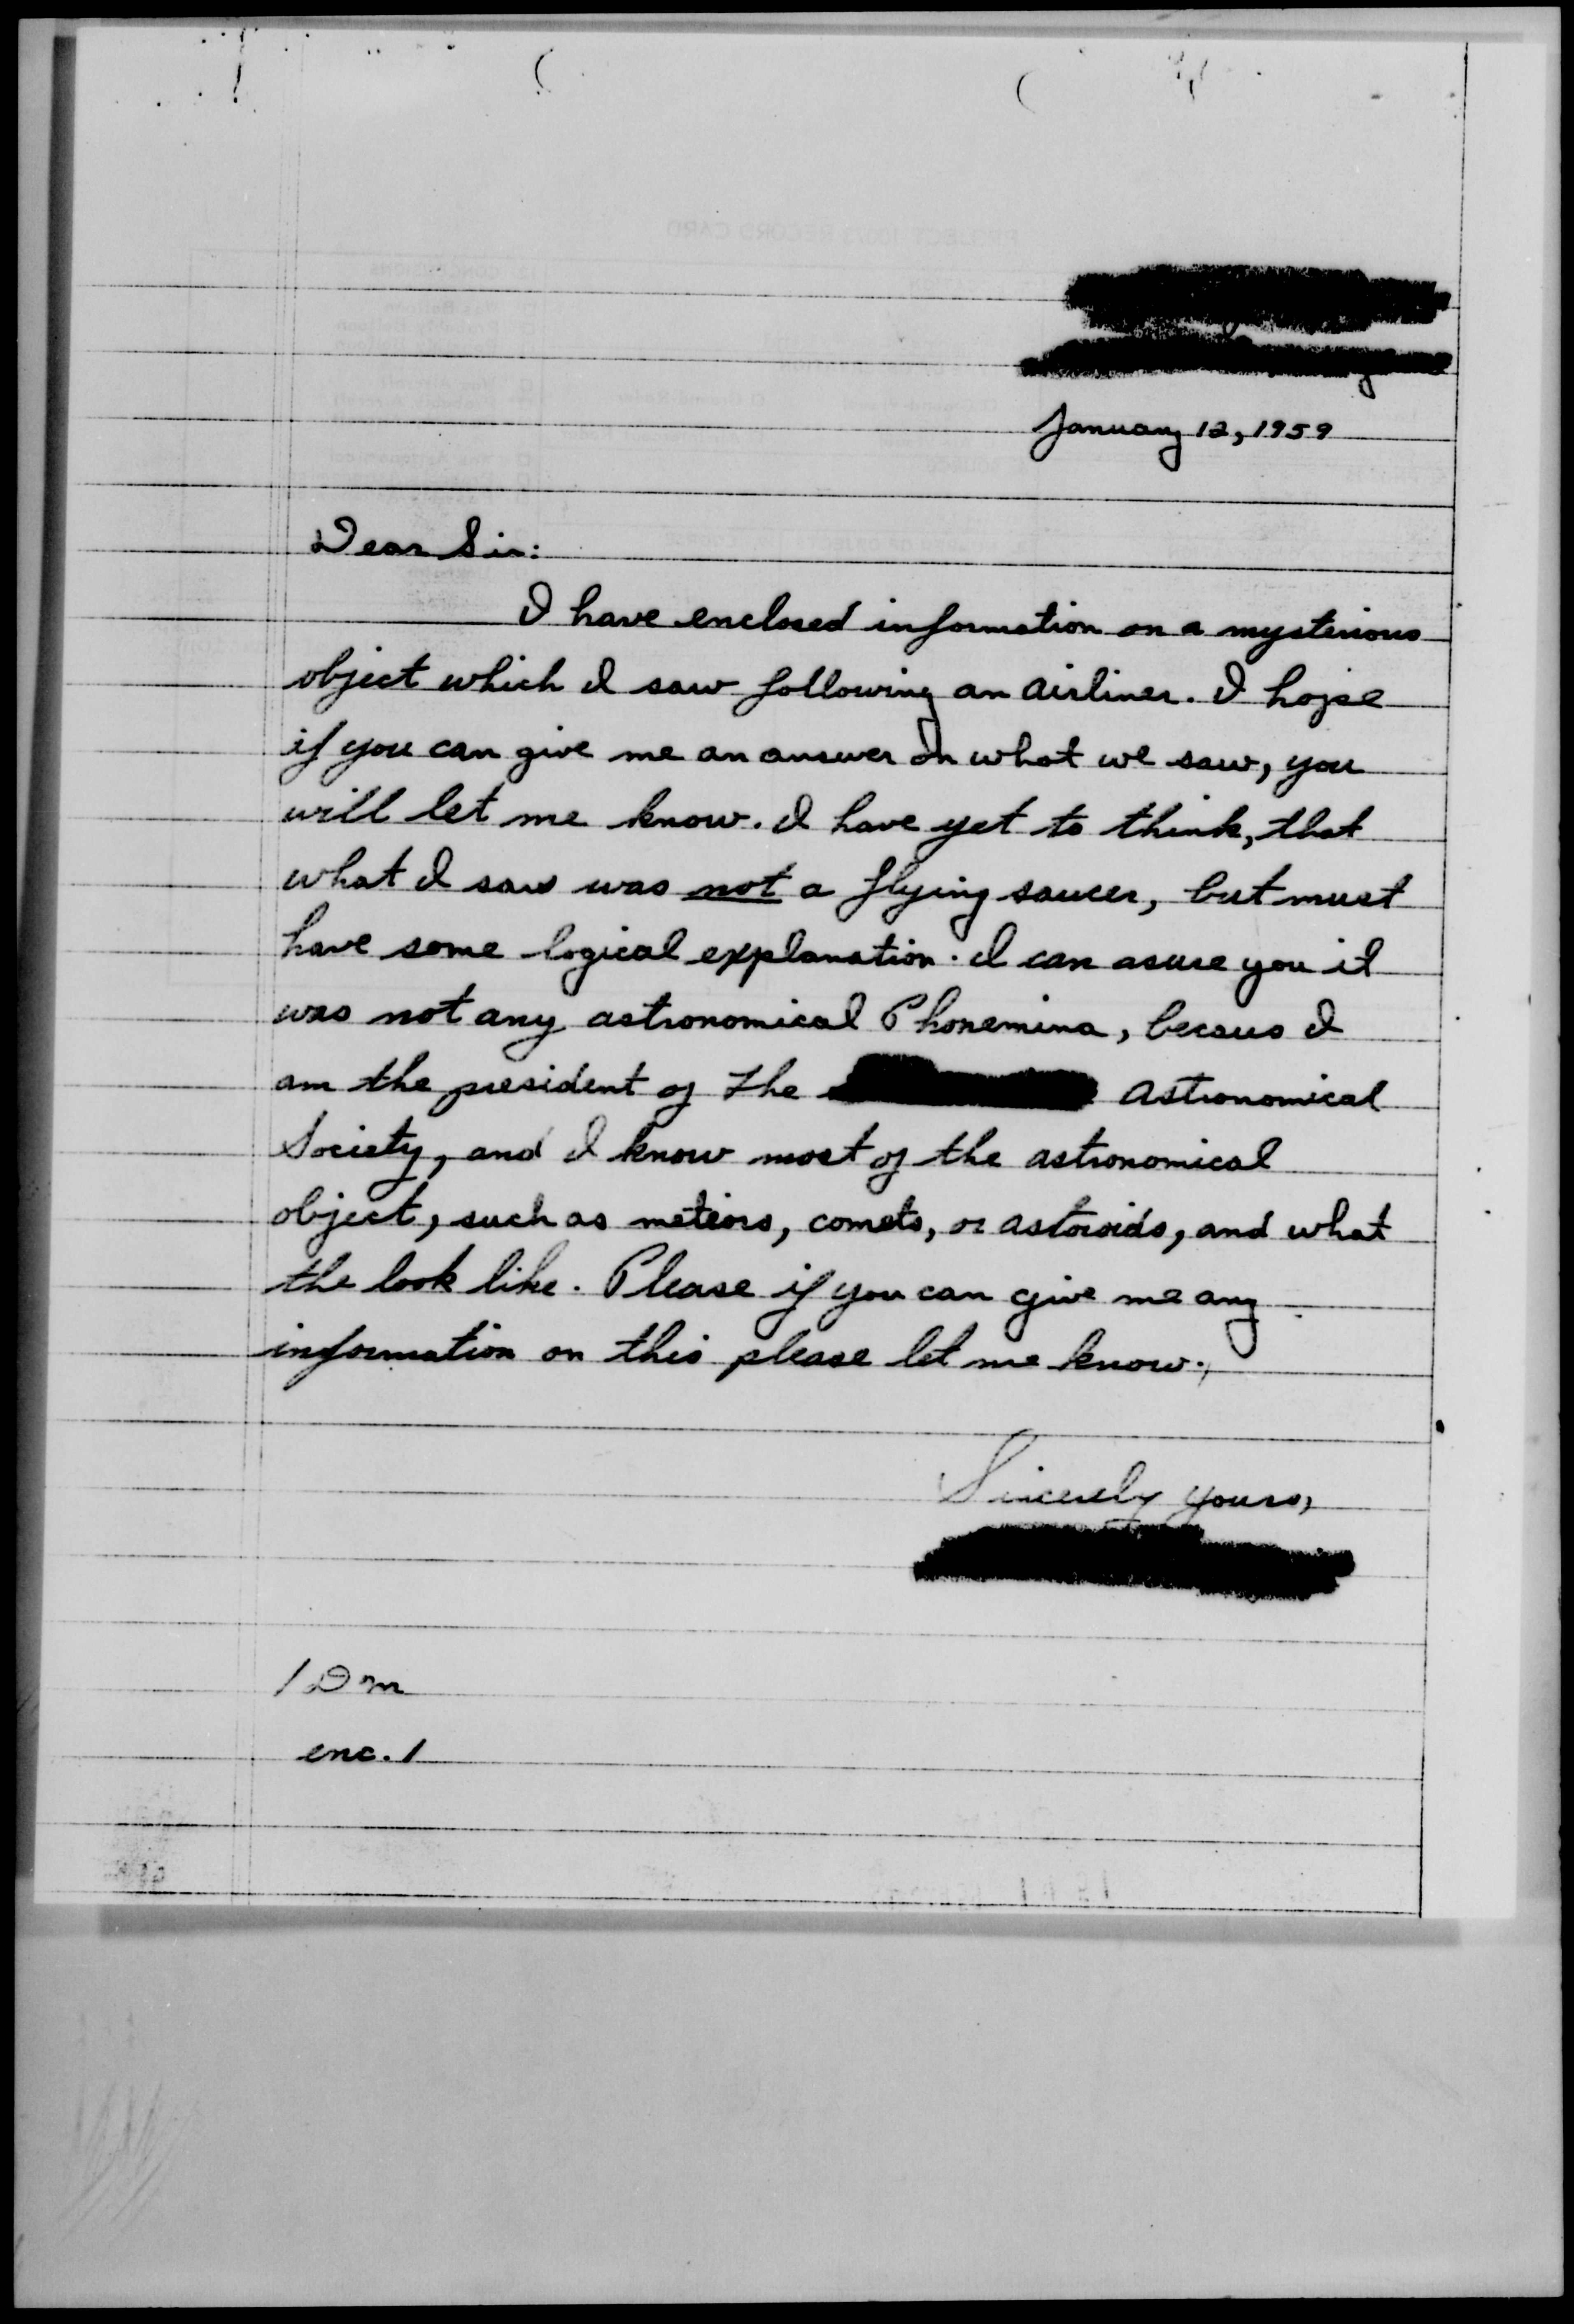 January 12, 1959
Dear Sir:
I have enclosed information on a mysterious
object which I saw following an airliner. I hope
if you can give me an answer on what we saw, you
will let me know. I have yet to think, that
what I saw was not a flying saucer, but must
have some logical explanation. I can asure you it
was not any astronomical Phonemina, becaus I
am the president of the astronomical
Society, and I know most of the astronomical
object, such as meteors, comets, or astoroids, and what
the look like. Please if you can give me any
information on this please let me know.
Sincerely yours,
/DM
enc. 1